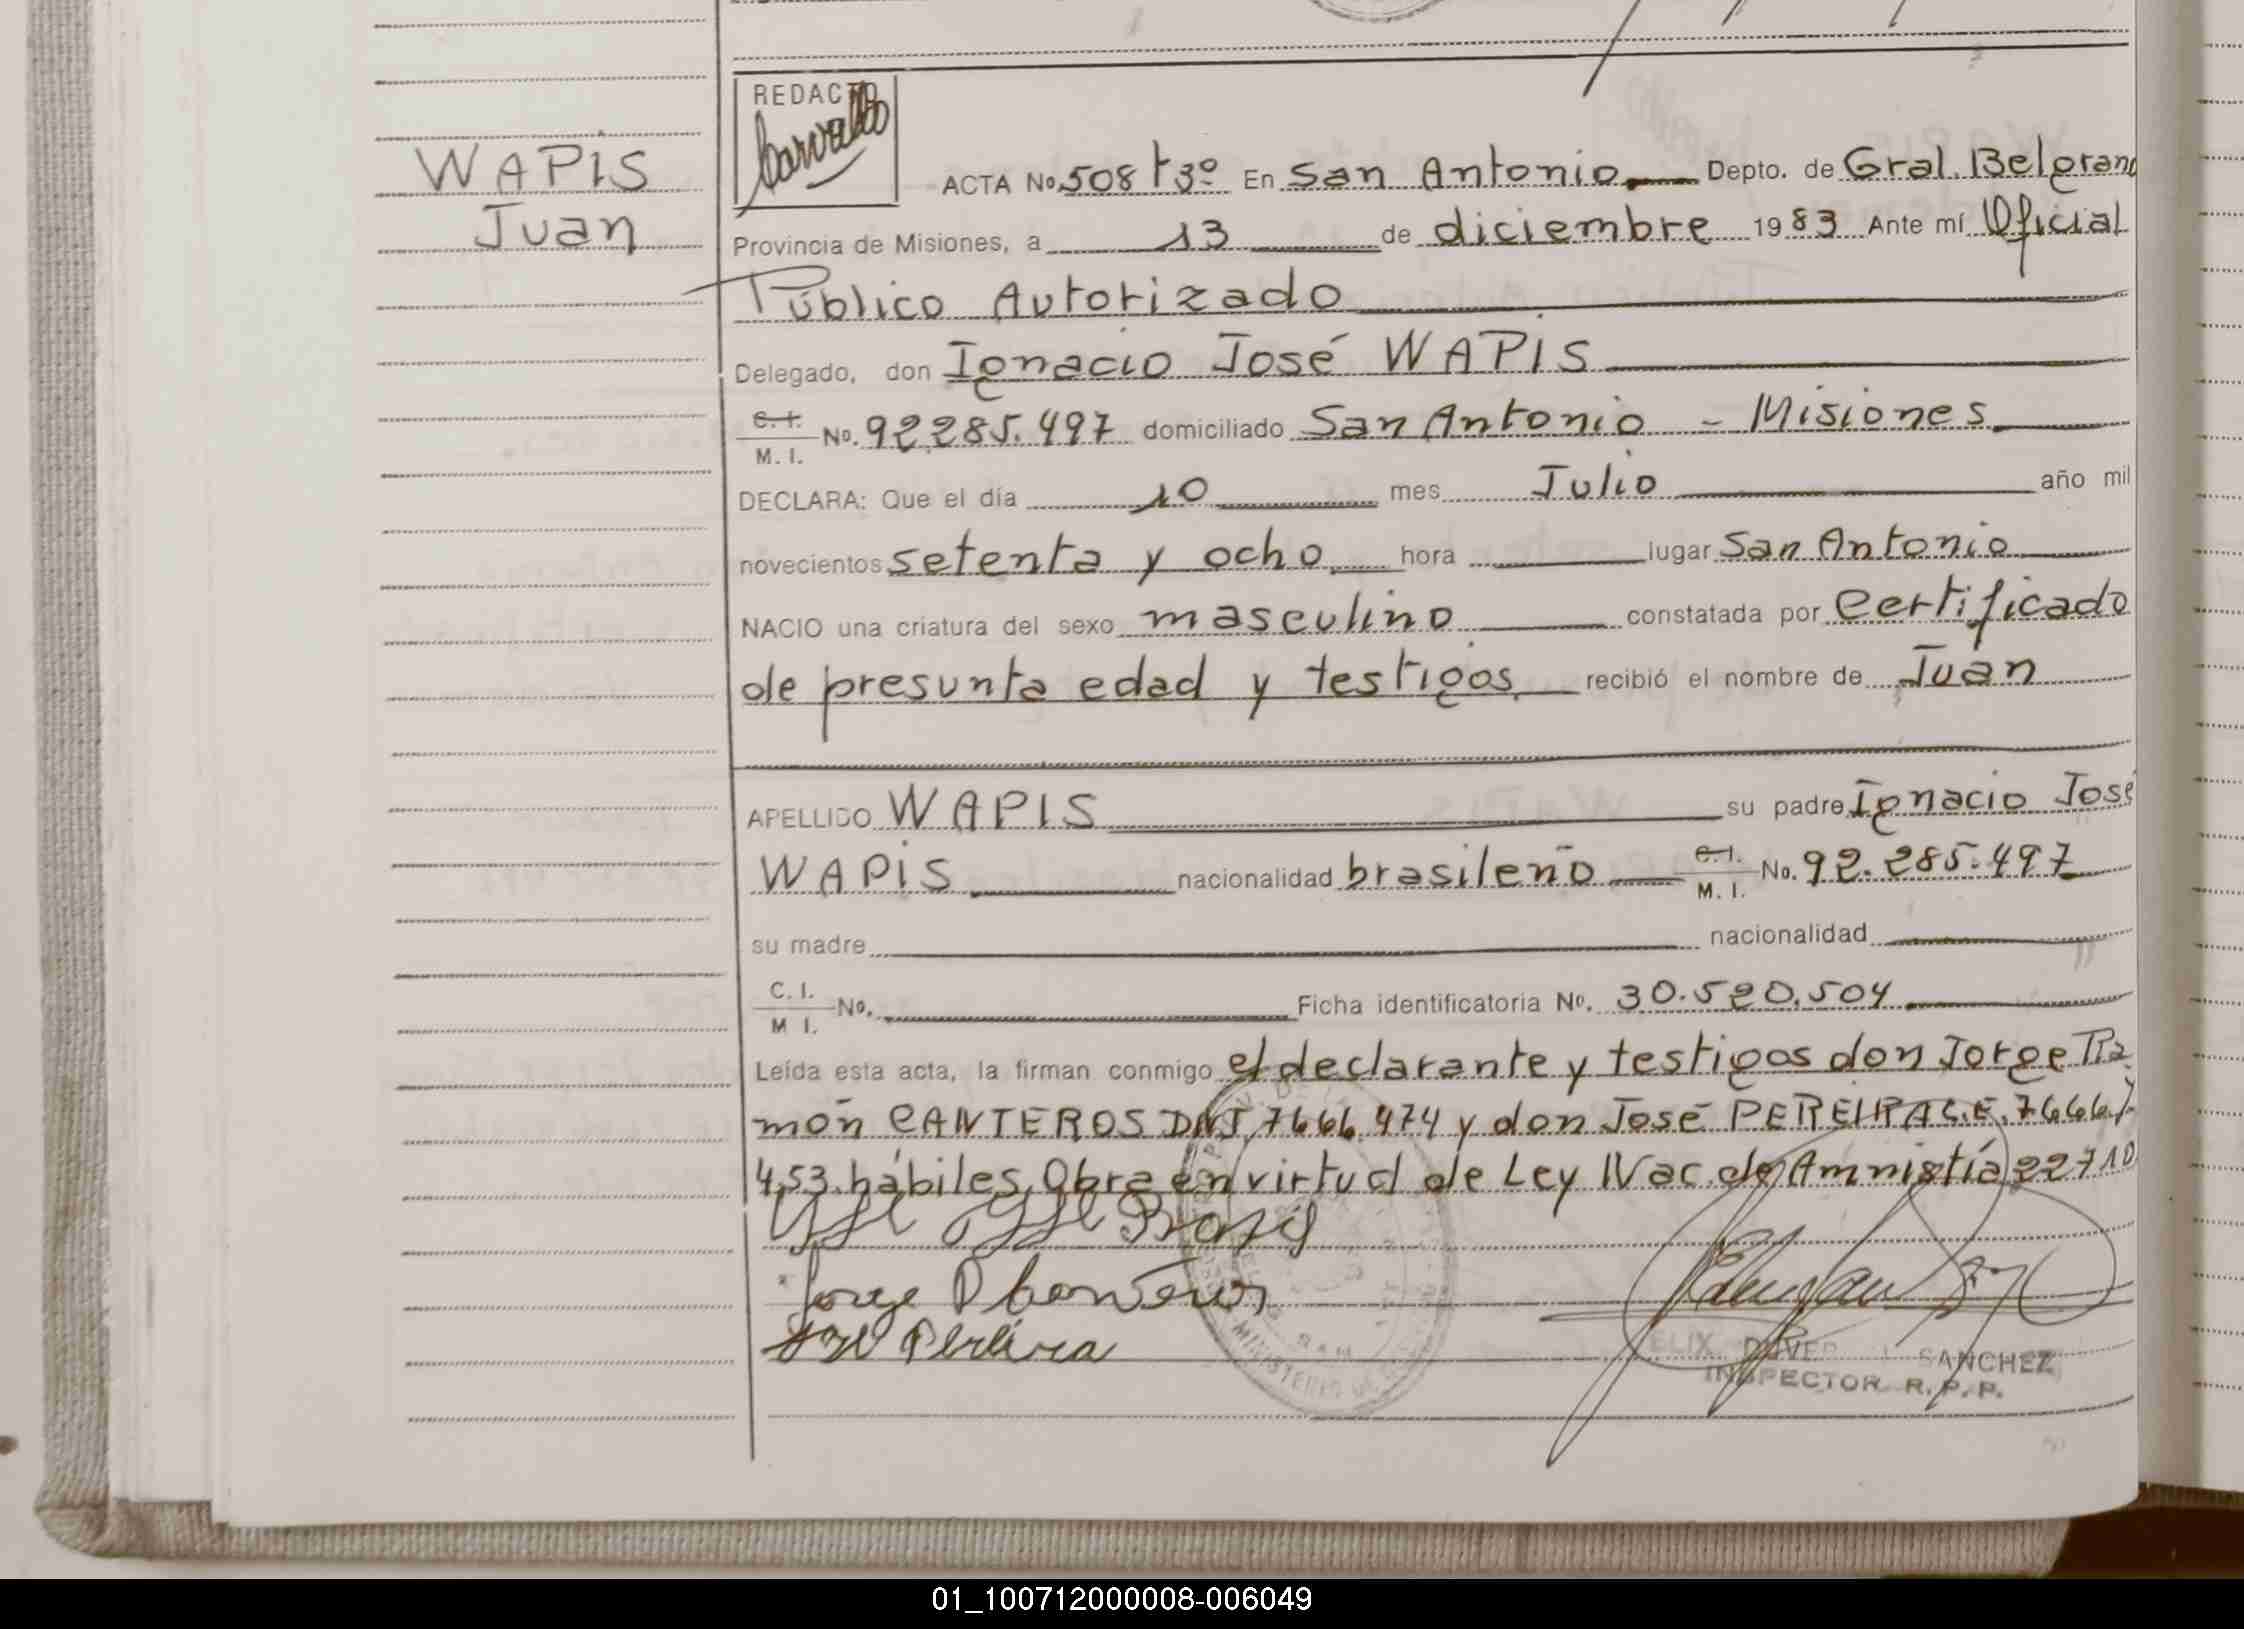 REDACTO
WAPIS
Juan
ACTA No. 508 t 3º En San Antonio Depto. de Gral. Belgrano
Provincia de Misiones, a 13 de diciembre 1983 Ante mí Oficial
Público Autorizado
Delegado, don Ignacio José WAPIS
C.I. M.I. No. 92.285.497 domiciliado San Antonio - Misiones
DECLARA: Que el día 10 mes Julio año mil
novecientos setenta y ocho hora lugar San Antonio
NACIO una criatura del sexo masculino constatada por Certificado
de presunta edad y testigos recibió el nombre de Juan
APELLIDO WAPIS su padre Ignacio José
WAPIS nacionalidad brasileño C.I. M.I. No. 92.285.497
su madre nacionalidad
C.I. M I. No. Ficha identificatoria No. 30.520.504
Leída esta acta, la firman conmigo el declarante y testigos don Jorge Ra
món CANTEROS DNI 7666.474 y don José PEREIRA C.E. 7.666./
453. hábiles. Obra en virtud de Ley Nac. de Amnistía 22710
Jorge R Canteros
José Pereira
FELIX SANCHEZ
INSPECTOR R.P.P.
MINISTERIO DE
01_100712000008-006049